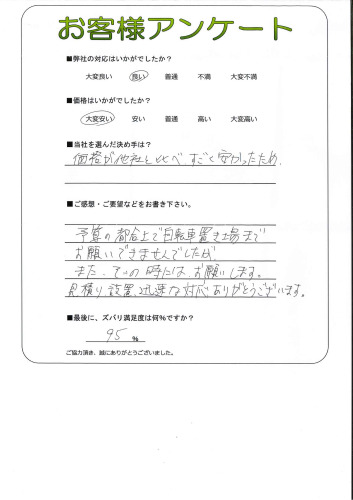 お客様アンケート
■弊社の対応はいかがでしたか？
大変良い 良い 普通 不満 大変不満
■価格はいかがでしたか？
大変安い 安い 普通 高い 大変高い
■当社を選んだ決め手は？
価格が他社と比べすごく安かったため.
■ご感想・ご要望などをお書き下さい。
予算の都合上で自転車置き場まで
お願いできませんでしたが、
また、その時には、お願いします。
見積り、設置、迅速な対応ありがとうございます。
■最後に、ズバリ満足度は何%ですか？
95 %
ご協力頂き、誠にありがとうございました。